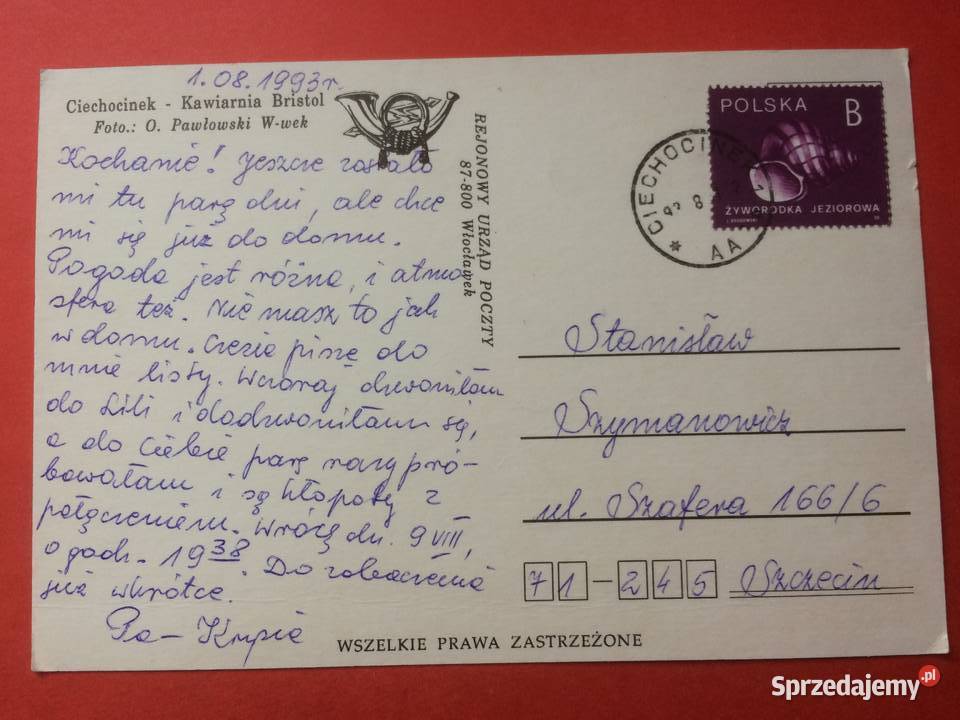 1.08.1993r.
Ciechocinek - Kawiarnia Bristol
Foto.: O. Pawłowski W-wek
Kochanie! Jeszcze zostało
mi tu parę dni, ale chce
mi się już do domu.
Pogoda jest różna, i atmo
sfera też. Nie masz to jak
w domu. Gienia pisze do
mnie listy. Wczoraj dzwoniłam
do Lili i dodzwoniłam się,
a do Ciebie parę razy pró-
bowałam i są kłopoty z
połączeniem. Wrócę dn. 9 VIII,
o godz. 19 38. Do zobaczenia
już wkrótce.
Pa-
REJONOWY URZĄD POCZTY
87-800 Włocławek
POLSKA B
ŻYWORODKA JEZIOROWA
CIECHOCINEK
* AA
Stanisław
Szymanowicz
ul. Szafera 166/6
71-245 Szczecin
WSZELKIE PRAWA ZASTRZEŻONE
Sprzedajemy.pl